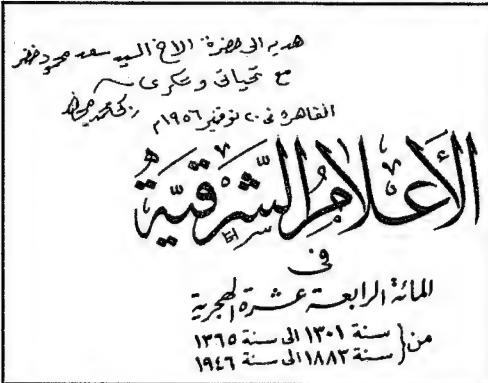 هديه الى حضرة الاخ السيد سعد محمود خضر
مع تحياتى وشكرى
القاهرة فى ٢٠ نوفمبر ١٩٥٦م زكى محمد مجاهد
الأعلام الشرقية
فى
المائة الرابعة عشرة الهجرية
من سنة ١٣٠١ الى سنة ١٣٦٥
سنة ١٨٨٣ الى سنة ١٩٤٦